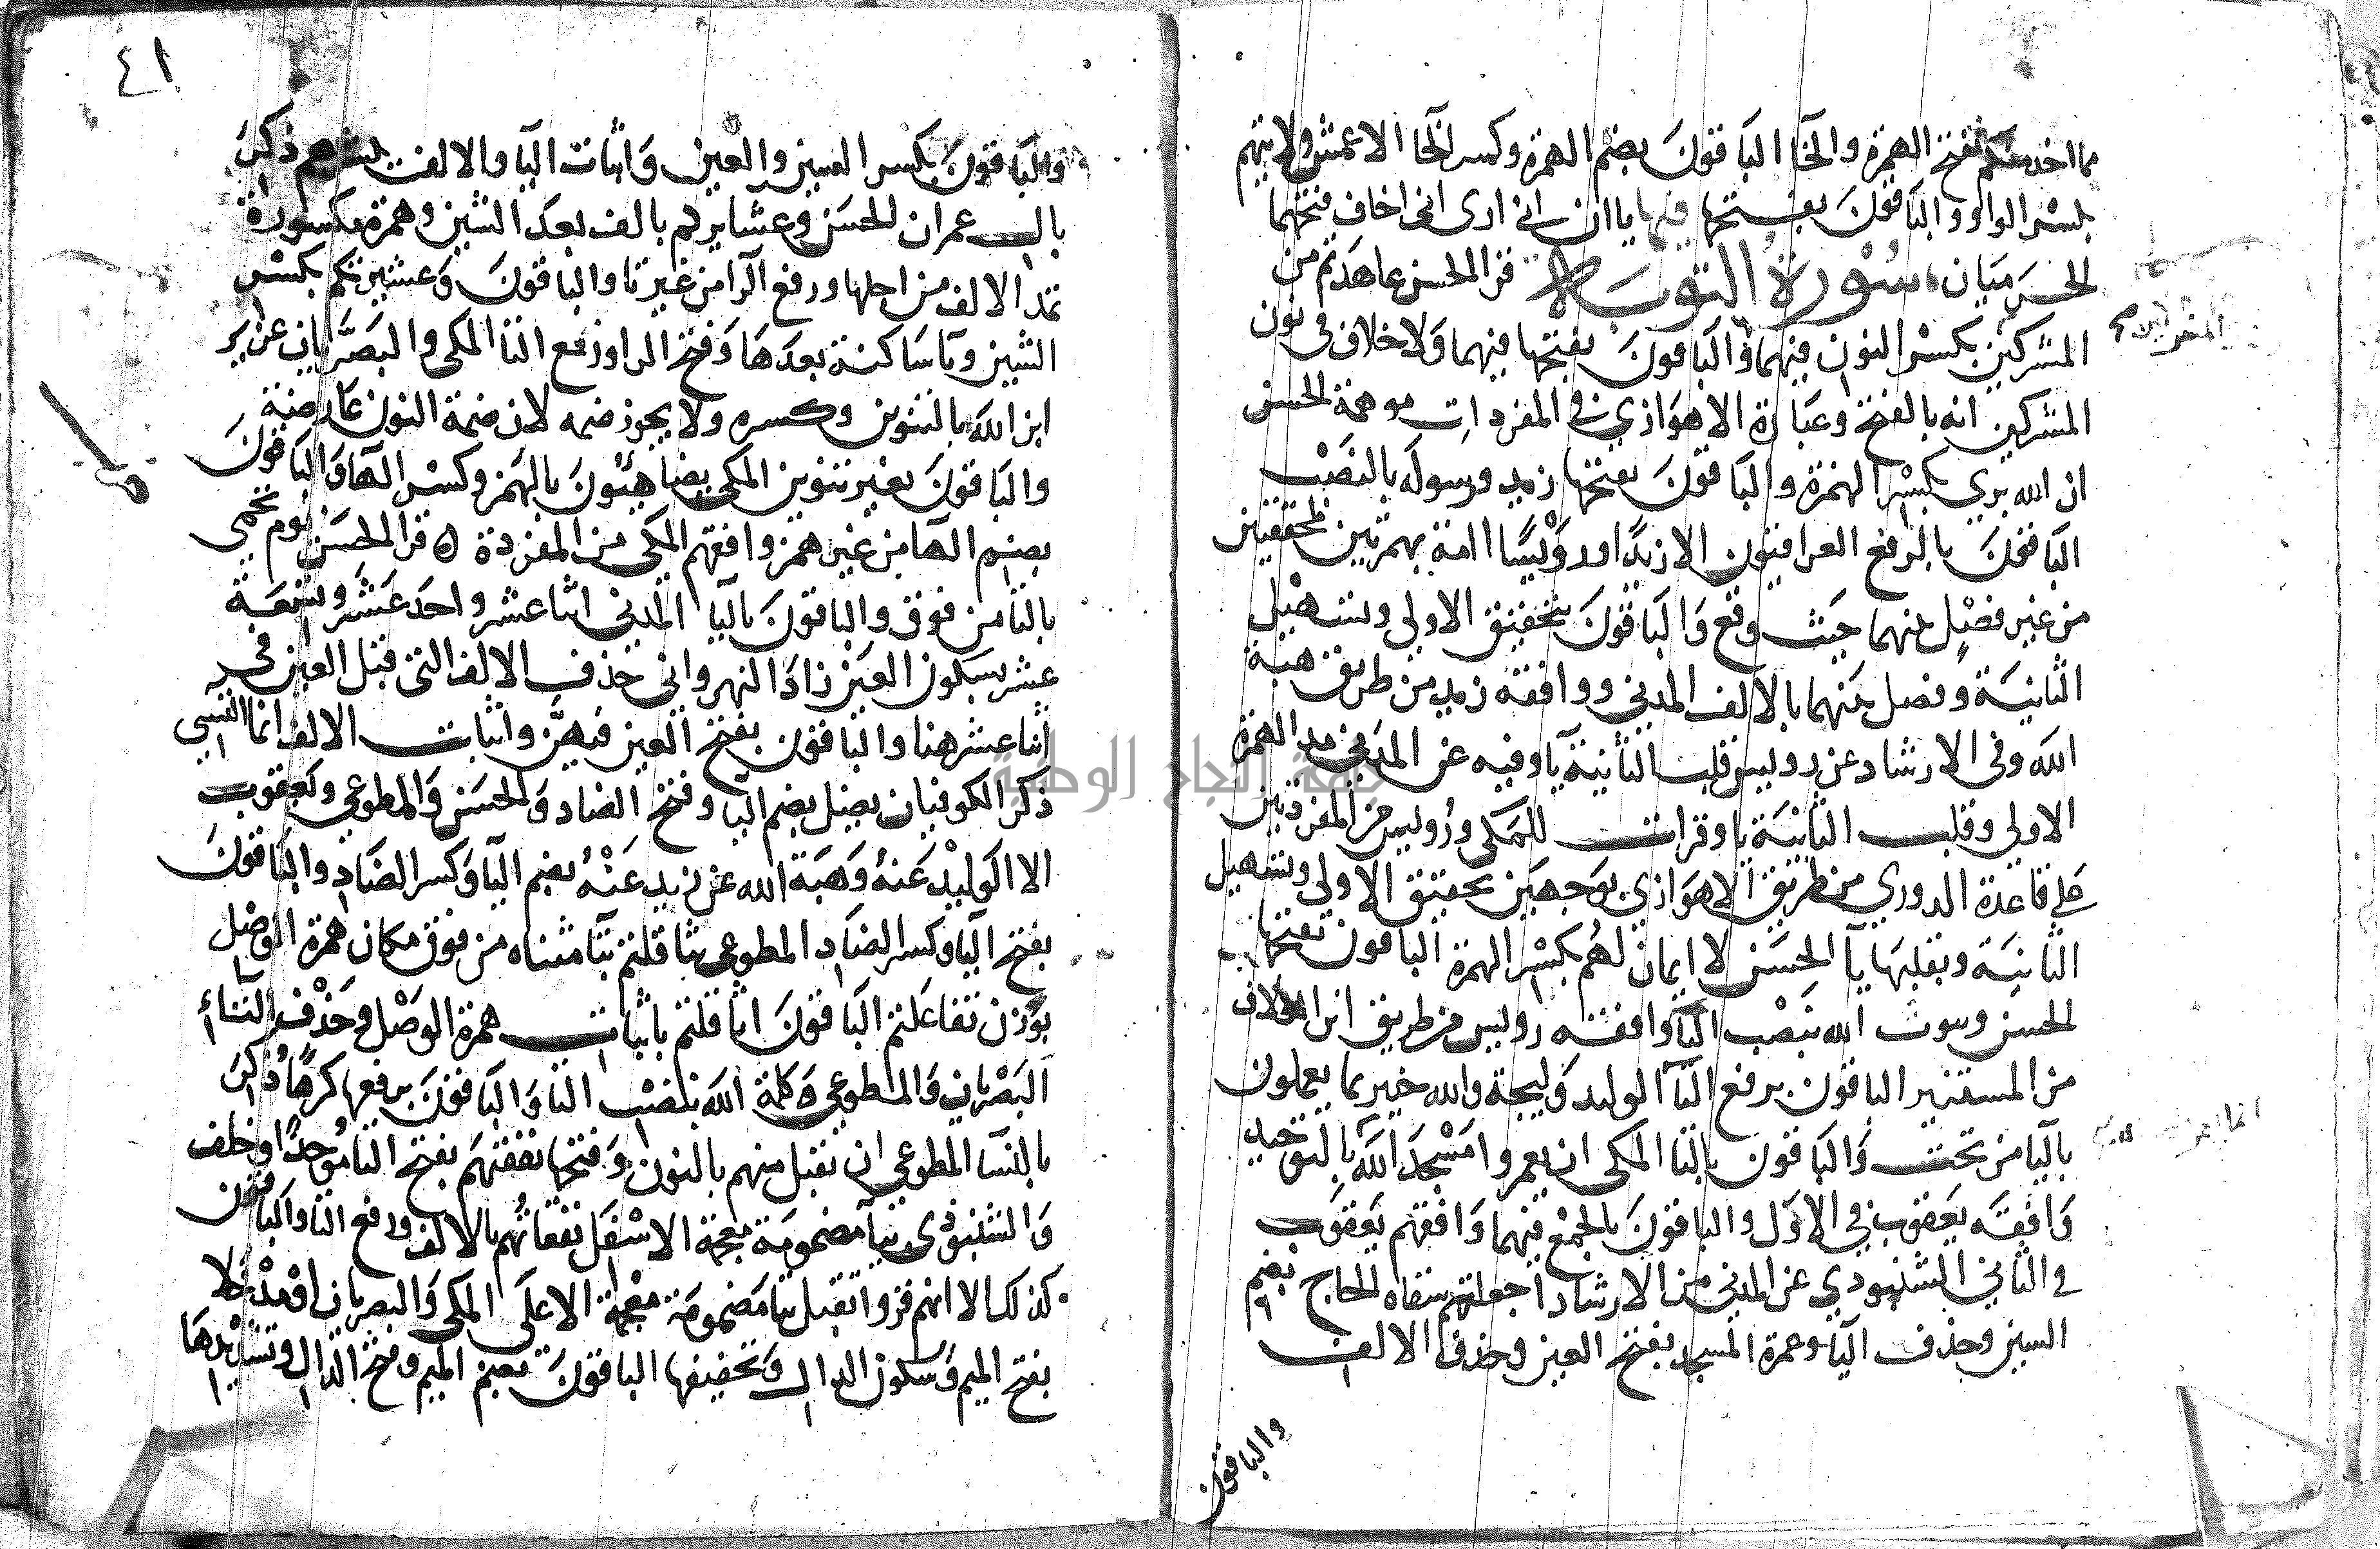 مما اخذ منكم بفتح الهمزة والخا الباقون بضم الهمزة وكسر الخا الاعمش ولايتهم
بكسر الواو والباقون بفتحها ياان انى ارى انى اخاف فتحهما
الحرميان سورة التوبة قرا الحسن عاهدتم من
المشركين بكسر النون فيهما والباقون بفتحها فيهما ولا خلاف فى نون
المشركين انه بالفتح وعبارة الاهوازي فى المفردات موهمة الحسن
ان الله بري بكسر الهمزة والباقون بفتحها زيد ورسوله بالنصب
الباقون بالرفع العراقيون الا زيدا وروَيسًا اامة بهمزتين محققتين
من غير فصل بينهما حيث وقع والباقون بتحقيق الاولى وتسهيل
الثانية وفصل بينهما بالالف المدنى ووافقه زيد من طريق هبة
الله وفى الارشاد عن رويس قلب الثانية يا وفيه عن المدنى مد الهمزة
الاولى وقلب الثانية يا وقرات للمكى ورويس من المفردتين
على قاعدة الدوري من طريق الاهوازي بوجهين تحقيق الاولى وتسهيل
الثانية وبقلبها يا الحسن لا ايمان لهم بكسر الهمزة الباقون بفتحها
الحسن ويتوب الله بنصب البا وافقه رويس من طريق ابن العلاف
من المستنير الباقون برفع البا الوليد وليجة والله خبير بما يعملون
باليا من تحت والباقون بالتا المكى ان يعمروا مسجد الله بالتوحيد
وافقه يعقوب فى الاول والباقون بالجمع فيهما وافقهم يعقوب
فى الثانى الشنبوذي عن المدنى من الارشاد اجعلتم سقاه الحاج بضم
السين وحذف اليا وعمرة المسجد بفتح العين وحذف الالف
والباقون
٤١
والباقون بكسر السين والعين واثبات اليا والالف يبشرهم ذكر
بال عمران الحسن وعشايركم بالف بعد الشين وهمزة مكسورة
تمد الالف من اجلها ورفع الرا من غير تا والباقون وعشيرتكم بكسر
الشين ويا ساكنة بعدها وفتح الرا ورفع التا المكى والبصريان عزير
ابن الله بالتنوين وكسره ولا يجوز ضمه لان ضمة النون عارضة
والباقون بغير تنوين المكى يضاهئون بالهمز وكسر الها والباقون
بضم الها من غير همز وافقهم المكى من المفردة ه قرا الحسن يوم تحمى
بالتا من فوق والباقون باليا المدنى اثنا عشر واحد عشر وتسعة
عشر بسكون العين زاد النهروانى حذف الالف التى قبل العين فى
اثنا عشر هنا والباقون بفتح العين فيهن واثبات الالف انما النسى
ذكر الكوفيان يضل بضم اليا وفتح الضاد والحسن والمطوعى ويعقوب
الا الوليد عنه وهبة الله عن زيد عنه بضم اليا وكسر الضاد والباقون
بفتح اليا وكسر الضاد المطوعى تثاقلتم بتا مثناه من فوق مكان همزة الوصل
بوزن تفاعلتم الباقون اثاقلتم باثبات همزة الوصل وحذف التاء
البصريان والمطوعى وكلمة الله بنصب التا والباقون برفعها كرها ذكر
بالنسا المطوعى ان نقبل منهم بالنون وفتحها نفقتهم بفتح التا موحدا وخلف
والشنبوذى بيا مضمومة معجمة الاسفل نفقاتهم بالالف ورفع التا والباقون
كذلك الا انهم قروا تقبل بتا مضمومة معجمة الاعلى المكى والبصريان او مدخلا
بفتح الميم وسكون الدال وتخفيفها الباقون بضم الميم وفتح الدال وتشديدها